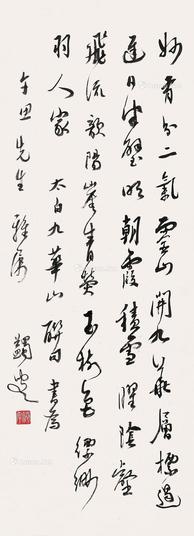 妙有分二氣靈山開九華層標遏
遲日半壁明朝霞積雪曜陰壑
飛流歕陽崖青熒玉樹色縹緲
羽人家 太白九華山聯句 書為
先生雅屬 蠲叟